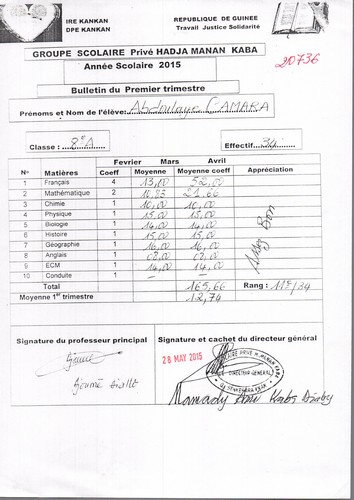 IRE KANKAN
DPE KANKAN
REPUBLIQUE DE GUINEE
Travail Justice Solidarité
GROUPE SCOLAIRE Privé HADJA MANAN KABA
Année Scolaire 2015
20736
Bulletin du Premier trimestre
Prénoms et Nom de l'élève: Abdoulaye CAMARA
Classe : 8e A
Effectif 34
Fevrier Mars Avril
N° Matières Coeff Moyenne Moyenne coeff Appréciation
1 Français 4 13,00 52,00
2 Mathématique 2 10,83 21,66
3 Chimie 1 10,00 10,00
4 Physique 1 15,00 15,00
5 Biologie 1 14,00 14,00
6 Histoire 1 15,00 15,00
7 Géographie 1 16,00 16,00
8 Anglais 1 08,00 08,00
9 ECM 1 14,00 14,00
10 Conduite 1 — —
Assez Bon
Total 165,66 Rang : 11e/34
Moyenne 1er trimestre 12,74
Signature du professeur principal
Signature et cachet du directeur général
28 MAY 2015
LE DIRECTEUR GENERAL
Diallo
Mamady Kaba